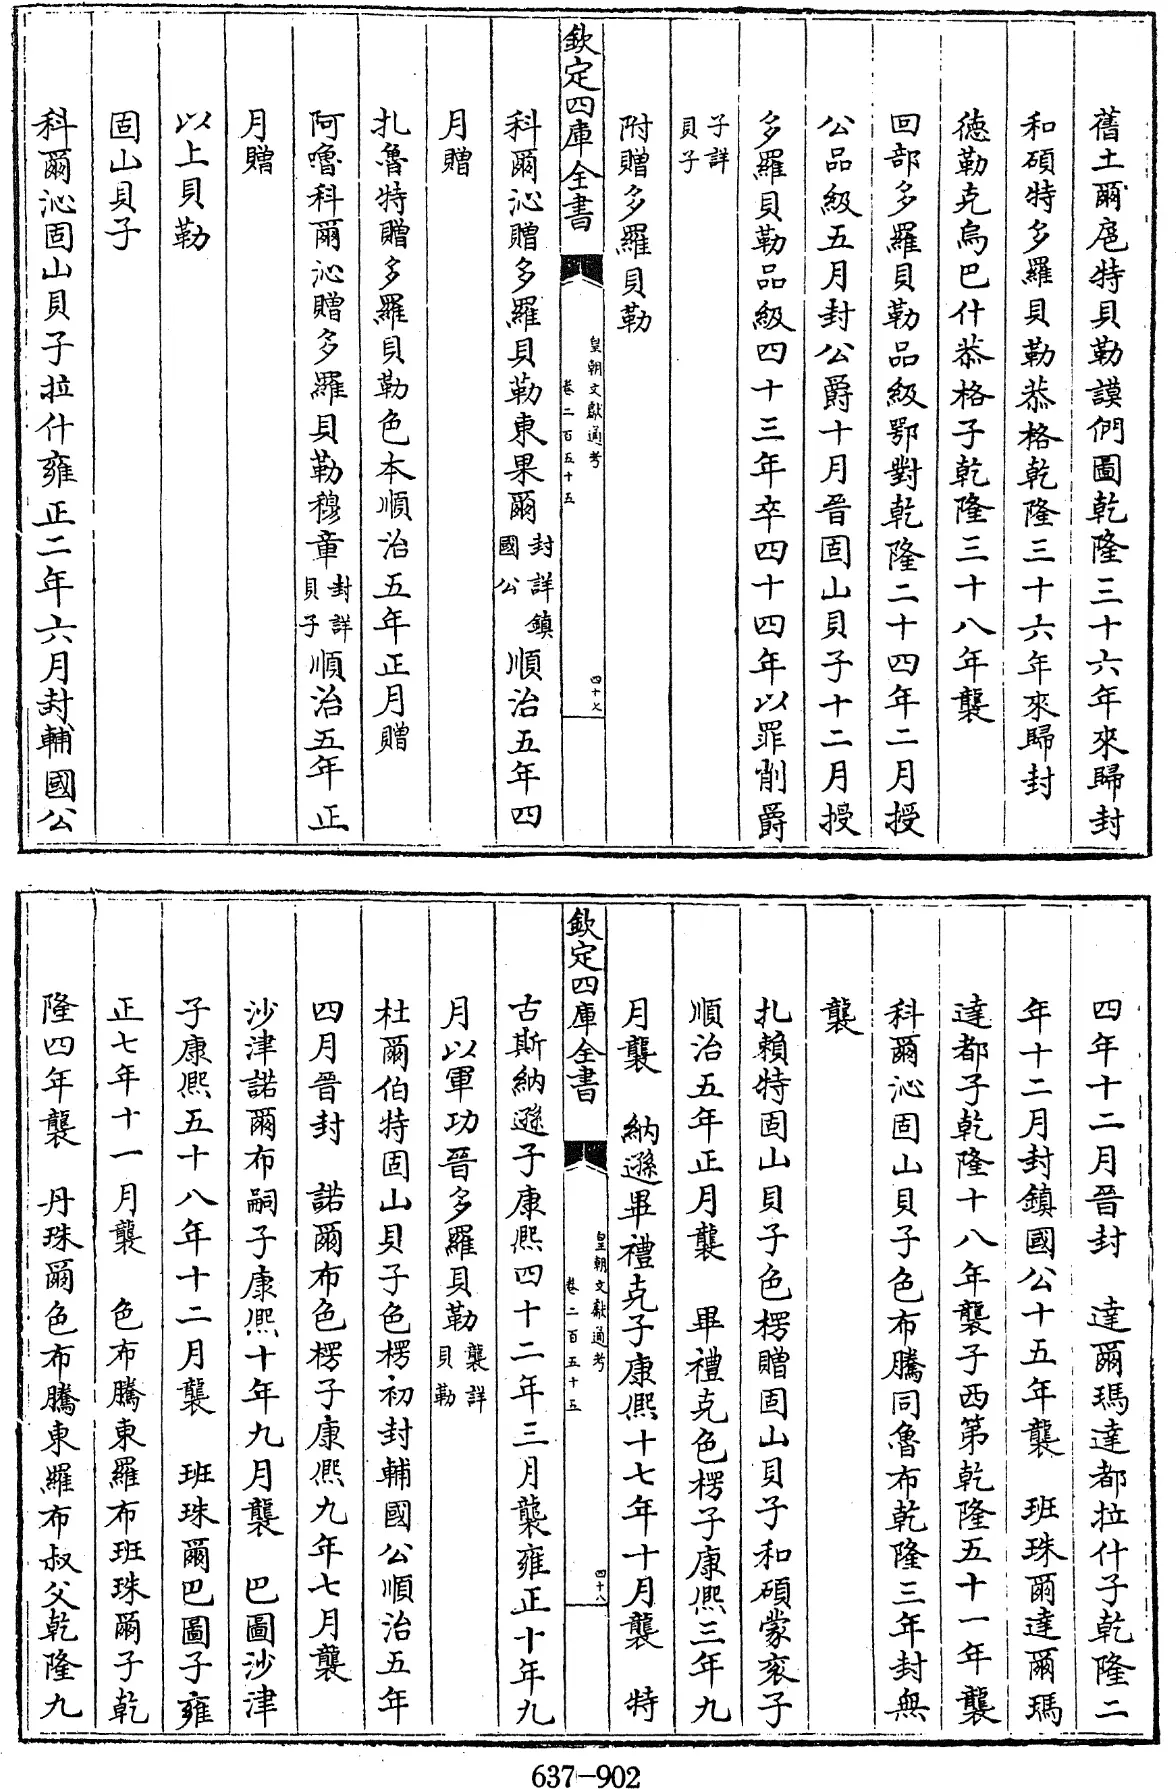 舊土爾扈特貝勒謨們圖乾隆三十六年來歸封
和碩特多羅貝勒恭格乾隆三十六年來歸封
德勒克烏巴什恭格子乾隆三十八年襲
回部多羅貝勒品級鄂對乾隆二十四年二月授
公品級五月封公爵十月晉固山貝子十二月授
多羅貝勒品級四十三年卒四十四年以罪削爵
子詳
貝子
附贈多羅貝勒
欽定四庫全書
皇朝文獻通考
卷二百五十五
四十七
科爾沁贈多羅貝勒東果爾封詳鎮國公順治五年四
月贈
扎魯特贈多羅貝勒色本順治五年正月贈
阿嚕科爾沁贈多羅貝勒穆章封詳貝子順治五年正
月贈
以上貝勒
固山貝子
科爾沁固山貝子拉什雍正二年六月封輔國公
四年十二月晉封 達爾瑪達都拉什子乾隆二
年十二月封鎮國公十五年襲 班珠爾達爾瑪
達都子乾隆十八年襲子西第乾隆五十一年襲
科爾沁固山貝子色布騰同魯布乾隆三年封無
襲
扎賴特固山貝子色楞贈固山貝子和碩蒙袞子
順治五年正月襲 畢禮克色楞子康熙三年九
月襲 納遜畢禮克子康熙十七年十月襲 特
欽定四庫全書
皇朝文獻通考
卷二百五十五
四十八
古斯納遜子康熙四十二年三月襲雍正十年九
月以軍功晉多羅貝勒襲詳貝勒
杜爾伯特固山貝子色楞初封輔國公順治五年
四月晉封 諾爾布色楞子康熙九年七月襲
沙津諾爾布嗣子康熙十年九月襲 巴圖沙津
子康熙五十八年十二月襲 班珠爾巴圖子雍
正七年十一月襲 色布騰東羅布班珠爾子乾
隆四年襲 丹珠爾色布騰東羅布叔父乾隆九
637-902